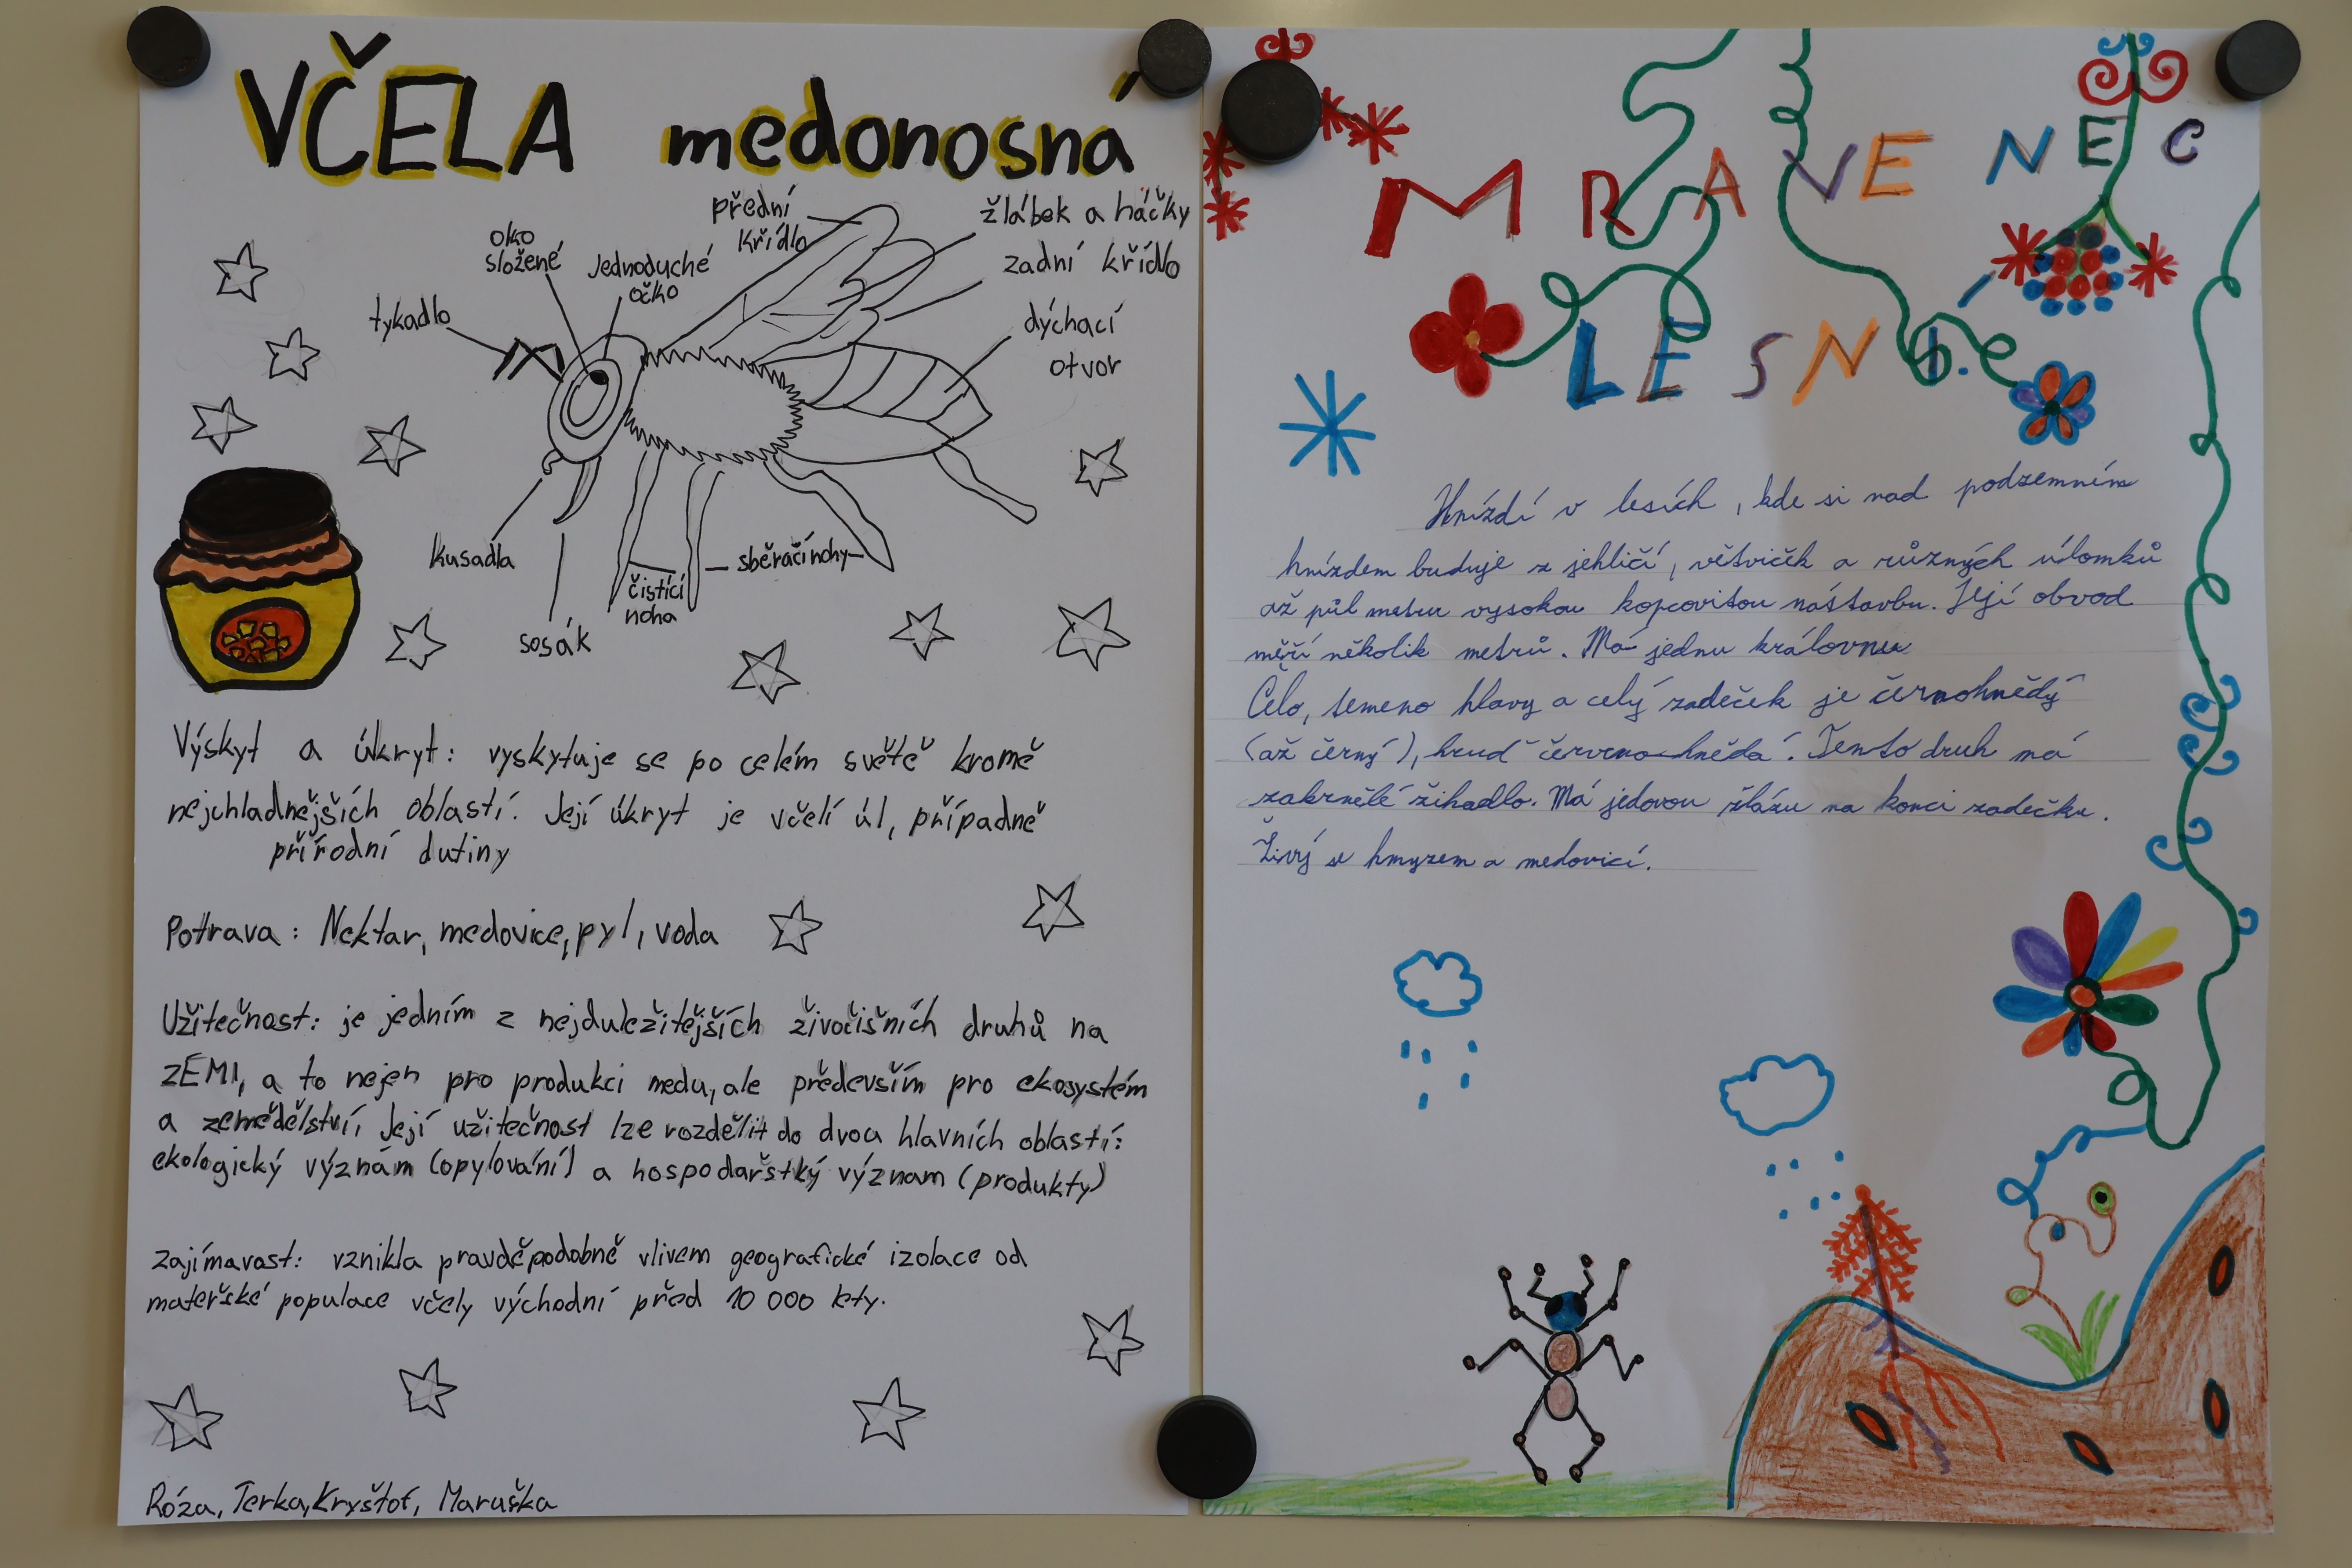 VČELA medonosná
přední
křídlo
žlábek a háčky
zadní křídlo
oko
složené
Jednoduché
očko
tykadlo
dýchací
otvor
kusadla
sosák
čistící
noha
sběračí nohy
Výskyt a úkryt: vyskytuje se po celém světě kromě
nejchladnějších oblastí. Její úkryt je včelí úl, případně
přírodní dutiny
Potrava: Nektar, medovice, pyl, voda
Užitečnost: je jedním z nejduležitějších živočišních druhů na
ZEMI, a to nejen pro produkci medu, ale především pro ekosystém
a zemědělství, Její užitečnost lze rozdělit do dvou hlavních oblastí:
ekologický význám (opylování) a hospodařstký význam (produkty)
Zajímavost: vznikla pravděpodobně vlivem geografické izolace od
mateřské populace včely východní před 10 000 lety.
Róza, Terka, Kryštof, Maruška
MRAVENEC
LESNÍ.
Hnízdí v lesích, kde si nad podzemním
hnízdem buduje z jehličí, větviček a různých úlomků
až půl metru vysokou kopcovitou nástavbu. Její obvod
měří několik metrů. Má jednu královnu
Čelo, temeno hlavy a celý zadeček je černohnědý
(až černý), hruď červenohnědá. Tento druh má
zakrnělé žihadlo. Má jedovou žlázu na konci zadečku.
Živý se hmyzem a medovicí.